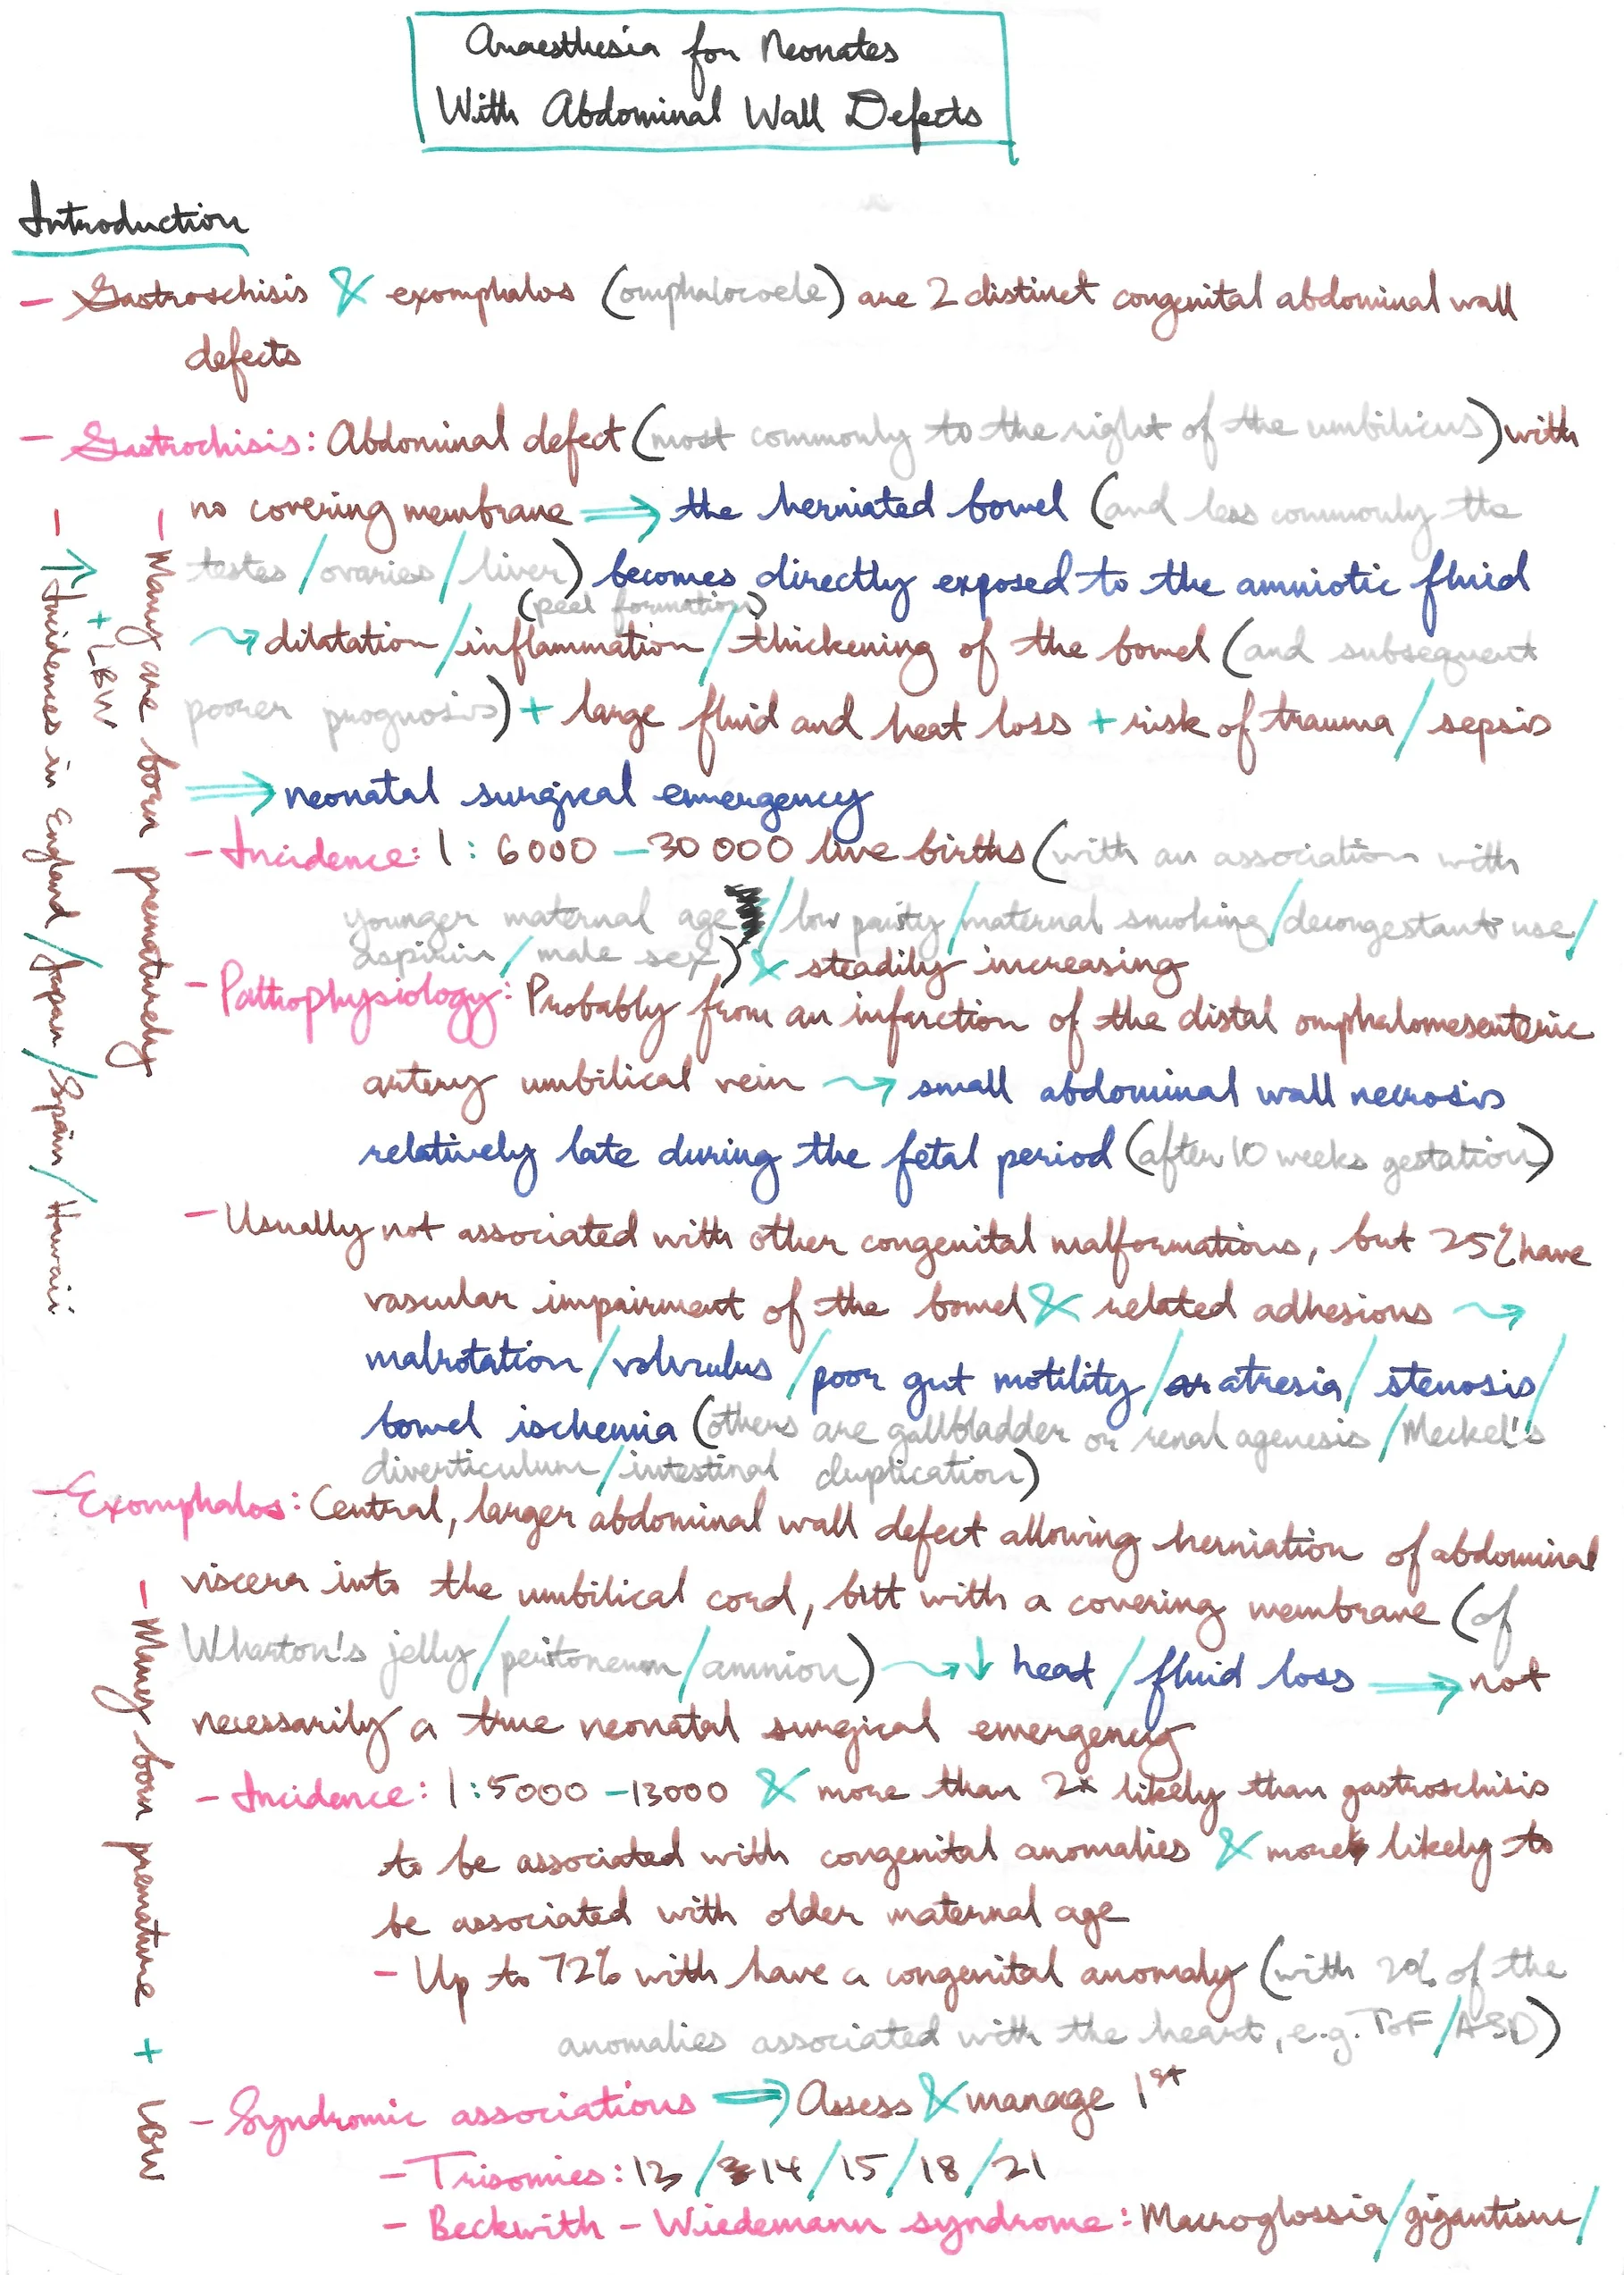 Anaesthesia for Neonates
With Abdominal Wall Defects
Introduction
- Gastroschisis & exomphalos (omphalocoele) are 2 distinct congenital abdominal wall
defects
- Gastrochisis: Abdominal defect (most commonly to the right of the umbilicus) with
no covering membrane ⇒ the herniated bowel (and less commonly the
testes / ovaries / liver) becomes directly exposed to the amniotic fluid
(peel formation)
⇝ dilatation / inflammation / thickening of the bowel (and subsequent
poorer prognosis) + large fluid and heat loss + risk of trauma / sepsis
⇒ neonatal surgical emergency
- Incidence: 1 : 6000 – 30 000 live births (with an association with
younger maternal age / low parity / maternal smoking / decongestant use /
aspirin / male sex) & steadily increasing
- Pathophysiology: Probably from an infarction of the distal omphalomesenteric
artery umbilical vein ⇝ small abdominal wall necrosis
relatively late during the fetal period (after 10 weeks gestation)
- Usually not associated with other congenital malformations, but 25% have
vascular impairment of the bowel & related adhesions ⇝
malrotation / volvulus / poor gut motility / atresia / stenosis /
bowel ischemia (others are gallbladder or renal agenesis / Meckel's
diverticulum / intestinal duplication)
- Many are born prematurely
+ LBW
- ↑ Incidences in England / Japan / Spain / Hawaii
- Exomphalos: Central, larger abdominal wall defect allowing herniation of abdominal
viscera into the umbilical cord, but with a covering membrane (of
Wharton's jelly / peritoneum / amnion) ⇝ ↓ heat / fluid loss ⇒ not
necessarily a true neonatal surgical emergency
- Incidence: 1 : 5000 – 13000 & more than 2x likely than gastroschisis
to be associated with congenital anomalies & more likely to
be associated with older maternal age
- Up to 72% with have a congenital anomaly (with 20% of the
anomalies associated with the heart, e.g. ToF / ASD)
- Syndromic associations ⇒ Assess & manage 1st
- Trisomies: 13 / 14 / 15 / 18 / 21
- Beckwith – Wiedemann syndrome: Macroglossia / gigantism /
- Many born premature + LBW